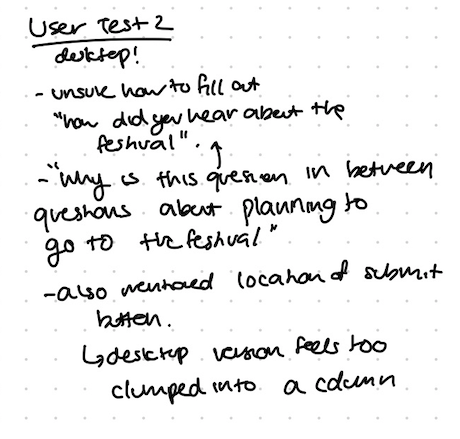 User Test 2
desktop!
- unsure how to fill out
"how did you hear about the
festival".
- "why is this question in between
questions about planning to
go to the festival"
- also mentioned location of submit
button.
↳ desktop version feels too
clumped into a column